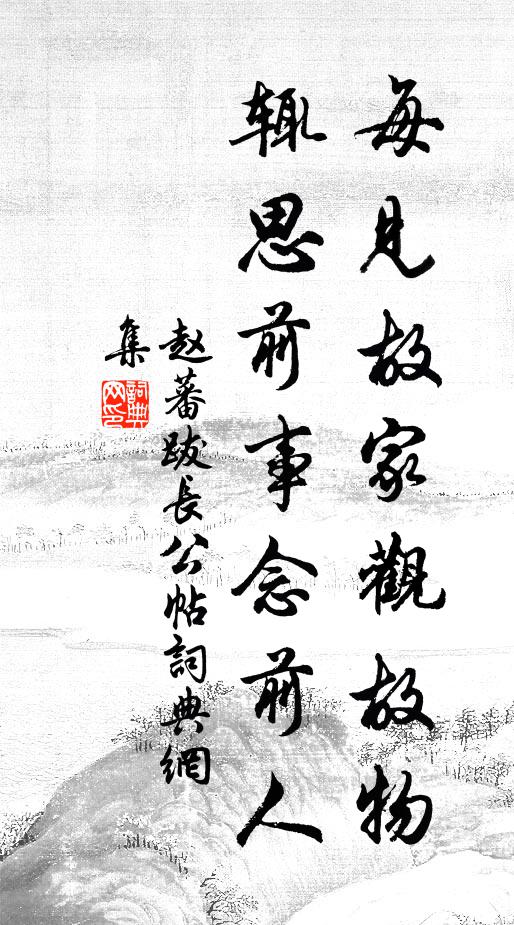 每見故家觀故物
輒思前事念前人
赵蕃跋長公帖詞典網
集
詞典網印